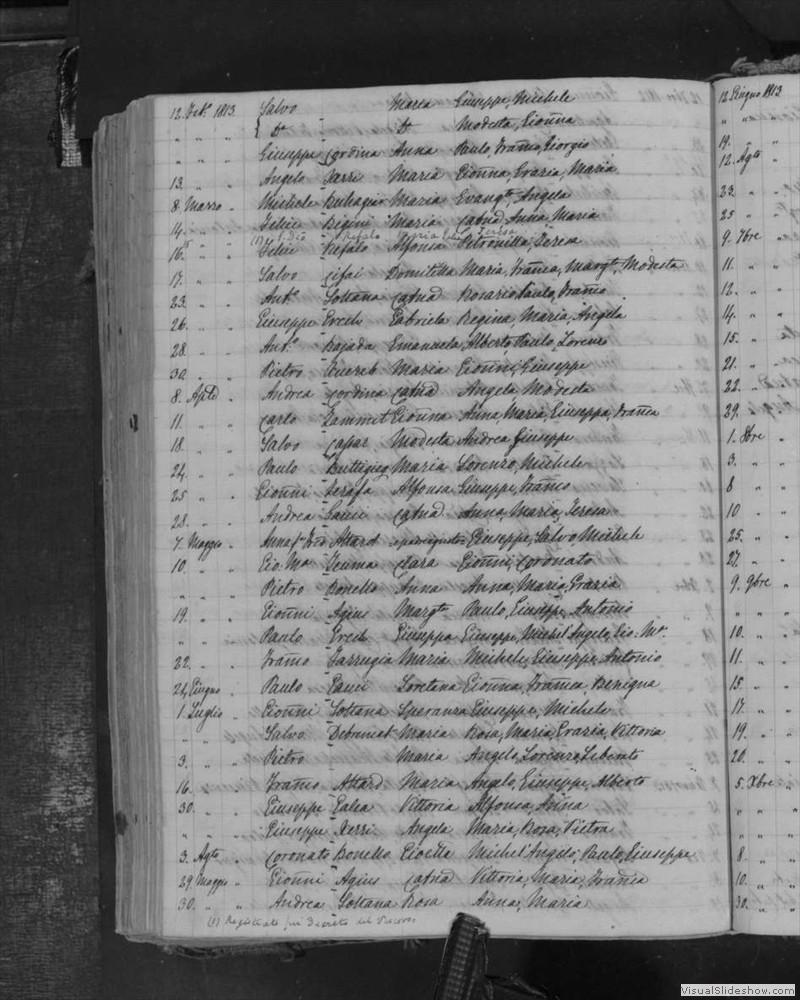 12. Feb.º 1813. Salvo Maria Giuseppe, Michele
" " " { Dº Dª Modesta, Gioñna
" " " Giuseppe Cordina Anna Paulo, Franco, Giorgio
13. " " Angelo Farri Maria Gioñna, Grazia, Maria
8. Marzo " Michele Buhagiar Maria Evangta, Angela
14. " " Felice Bigini Maria Catnã, Anna Maria
(1) Dio Refalo Maria Teresa
16. " " Felice Refalo Alfonsa Petronilla, Teresa
17. " " Salvo Cifai Domitilla Maria, Franca, Margta, Modesta
23. " " Antº Soltana Catnã Rosario Paulo, Franco
26. " " Giuseppe Grech Gabriela Regina, Maria, Angela
28. " " Antº Bajada Emanuela Alberto, Paulo, Lorenzo
30. " " Pietro Xuereb Maria Gioñni, Giuseppe
8. Aple " Andrea Cordina Catnã Angela Modesta
11. " " Carlo Zammit Gioñna Anna, Maria, Giuseppa, Franca
18. " " Salvo Capar Modesta Andrea Giuseppe
24. " " Paulo Buttigieg Maria Lorenzo, Michele
25 " " Gioñni Xerafa Alfonsa Giuseppe, Franco
28. " " Andrea Gauci Catnã Anna, Maria, Teresa
7. Maggio " Attard Giuseppe, Salvo Michele
10. " " Gio: Mª Zeuma Clara Gioñni, Coronato
" " " Pietro Bonello Anna Anna, Maria, Grazia
19. " " Gioñni Agius Margta Paulo, Giuseppe, Antonio
" " " Paulo Grech Giuseppa Giuseppe, Michel'Angelo, Gio. Mª.
22. " " Franco Farrugia Maria Michele, Giuseppe, Antonio
24. Giugno " Paulo Gauci Loretana Gioñna, Franca, Benigna
1. Luglio " Gioñni Soltana Speranza Giuseppe, Michele
" " " Salvo Debramat Maria Rosa, Maria, Grazia, Vittoria
3. " " Pietro Maria Angelo, Lorenzo, Liberato
16. " " Franco Attard Maria Angelo, Giuseppe, Alberto
30. " " Giuseppe Galea Vittoria Alfonsa, Anna
" " " Giuseppe Xerri Angela Maria, Rosa, Pietra
3. Agto " Coronato Bonello Michel'Angelo, Paulo, Giuseppe
29. Maggio " Gioñni Agius Catnã Vittoria, Maria, Franca
30. " " Andrea Soltana Rosa Anna, Maria
(1) Registrato per Decreto del
12 Giugno 1813.
" " "
19. " "
12. Agto "
23. " "
25 " "
9. 7bre "
11. " "
12. " "
14. " "
15. " "
21. " "
22. " "
29. " "
1. 8bre "
3. " "
8 " "
10 " "
25. " "
27. " "
9. 9bre "
10. " "
11. " "
15. " "
17. " "
19. " "
20. " "
5. Xbre "
" " "
" " "
8. " "
10. " "
30. " "
VisualSlideshow.com